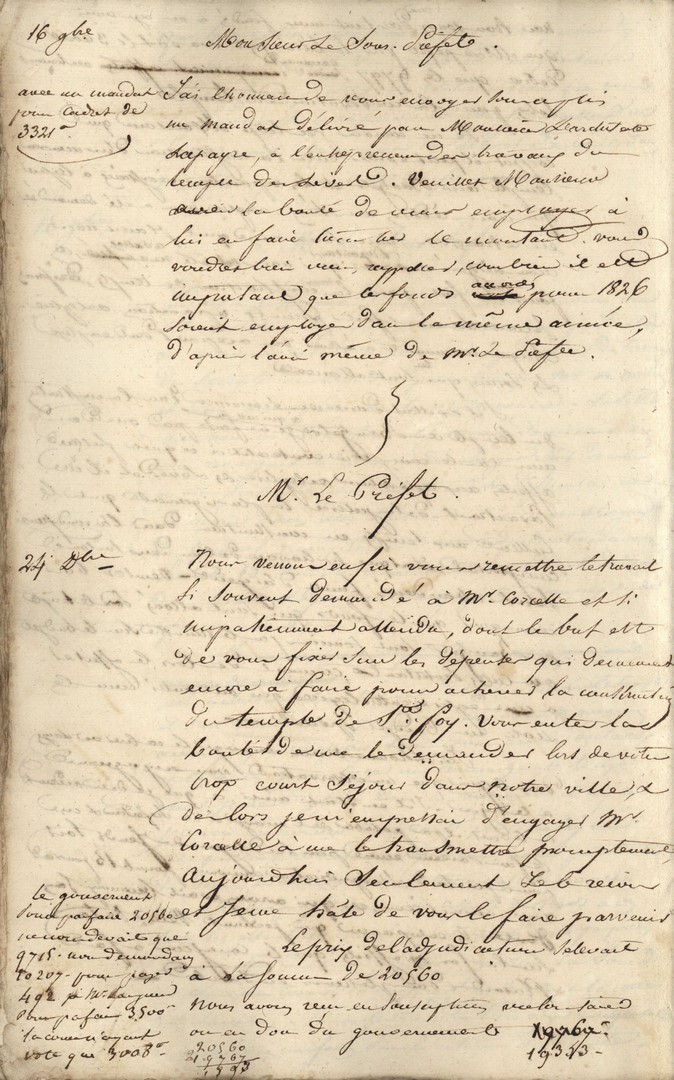 16 9bre
Monsieur Le Sous-Préfet.
avec un mandat
pour Cadret de
3321
J'ai l'honneur de vous envoyer sous ce plis
un mandat délivré par Monsieur L'architecte
Lapayre, à l'entrepreneur des travaux du
temple des Lèves. Veuillez Monsieur
avoir la bonté de vous employer à
lui en faire toucher le montant. vous
voudrez bien vous rappeler, combien il est
important que les fonds accordés pour 1826
soient employé dans la même année,
d'après l'avis même de Mr. Le Préfet.
Mr. Le Préfet.
24 Dbre
Nous venons enfin vous remettre le travail
si souvent demandé à Mr Corcelle et si
impatiemment attendu, dont le but est
de vous fixer sur les dépenses qui demeurent
encore à faire pour achever la construction
du temple de Ste Foy. Vous eutes la
bonté de me le demander lors de votre
trop court séjour dans notre ville, &
dès lors je m'empressai d'engager Mr.
Corcelle à me le transmettre promptement,
aujourdhui seulement je le reçois
et je me hâte de vous le faire parvenir
Le prix de l'adjudication s'elevant
à la somme de 20560
Nous avons reçu en souscriptions
ou en don du gouvernement
19313-
le gouvernement
pour parfaire 20560
ne nous devait que
9715- nous demandons
10207- pour payer
492 p. Mr
pour parfaire 3500
la commune ayant
voté que 3008
20560
19767
1593